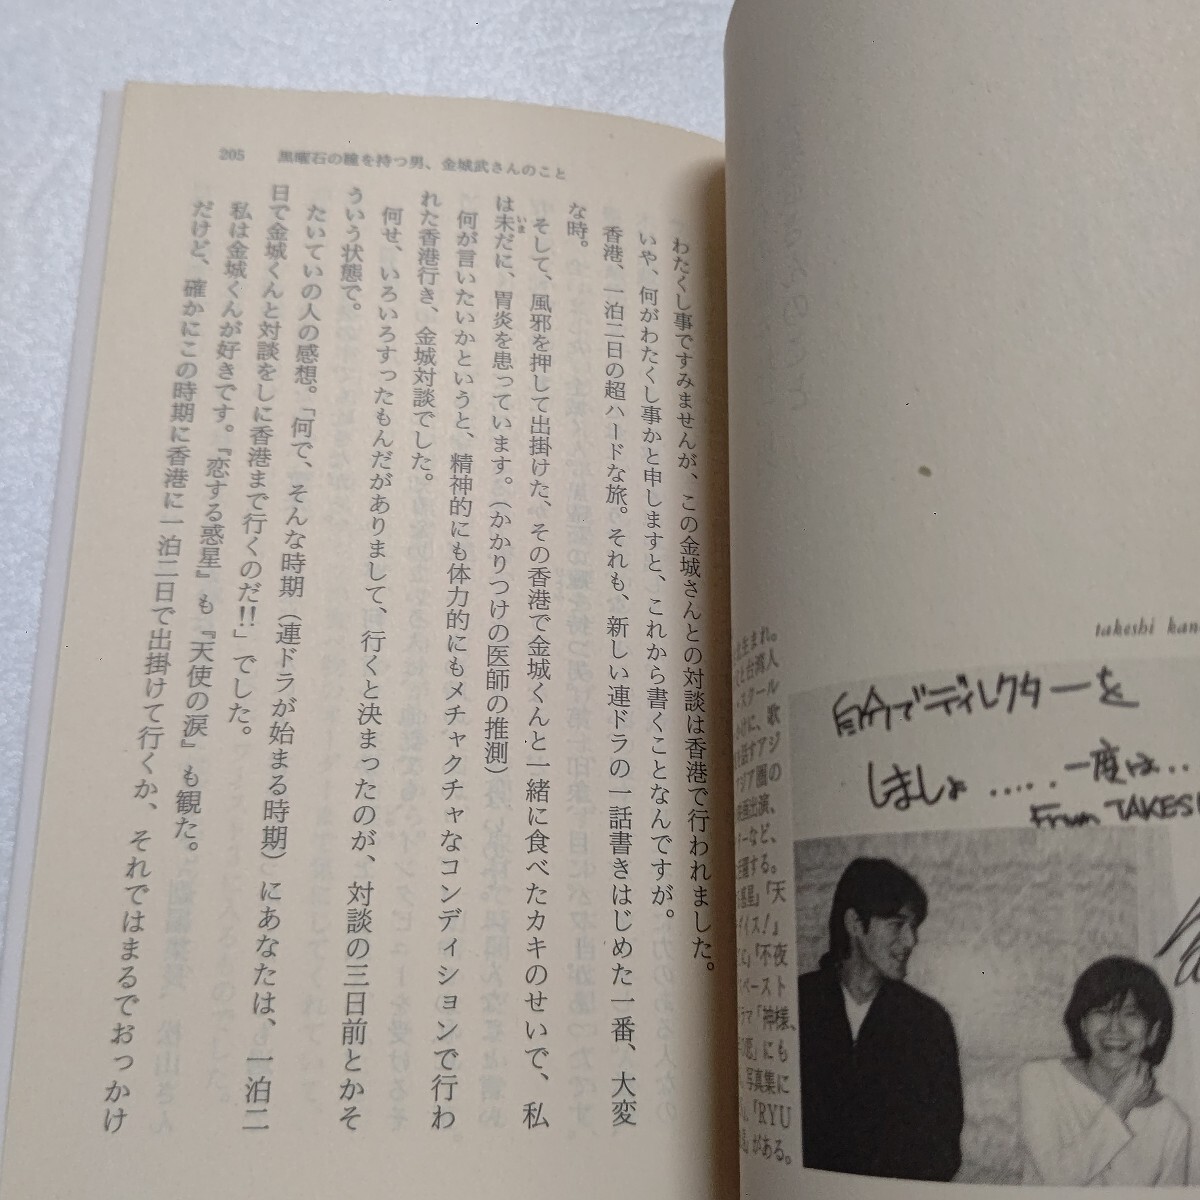 takeshi kan
自分でディレクターを
しましょ‥‥‥一度は‥
From TAKES
生まれ。
と台湾人
スクール
かけに、歌
を話すアジ
ジア圏の
画出演、
ーなど、
躍する。
惑星」「天
ダイス!」
「不夜
ベースト
ラマ「神様、
にも
写真集に
「RYU
がある。
205 黒曜石の瞳を持つ男、金城武さんのこと
わたくし事ですみませんが、この金城さんとの対談は香港で行われました。
いや、何がわたくし事かと申しますと、これから書くことなんですが。
香港、一泊二日の超ハードな旅。それも、新しい連ドラの一話書きはじめた一番、大変
な時。
そして、風邪を押して出掛けた、その香港で金城くんと一緒に食べたカキのせいで、私
は未だに、胃炎を患っています。(かかりつけの医師の推測)
何が言いたいかというと、精神的にも体力的にもメチャクチャなコンディションで行わ
れた香港行き、金城対談でした。
何せ、いろいろすったもんだがありまして、行くと決まったのが、対談の三日前とかそ
ういう状態で。
たいていの人の感想。「何で、そんな時期(連ドラが始まる時期)にあなたは、一泊二
日で金城くんと対談をしに香港まで行くのだ!!」でした。
私は金城くんが好きです。『恋する惑星』も『天使の涙』も観た。
だけど、確かにこの時期に香港に一泊二日で出掛けて行くか、それではまるでおっかけ